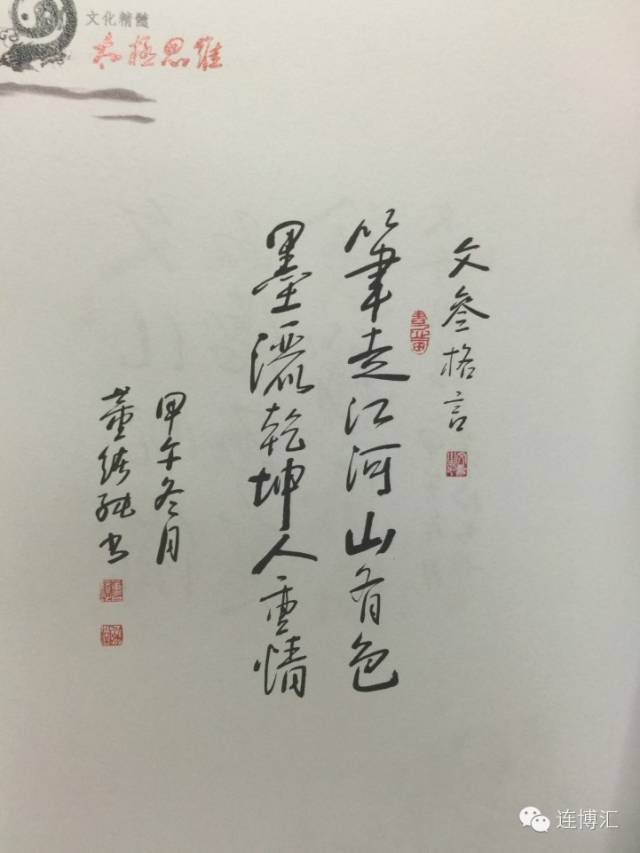 文化精髓
太极思维
文叁格言
筆走江河山有色
墨灑乾坤人重情
甲午冬月
董 书
连博汇